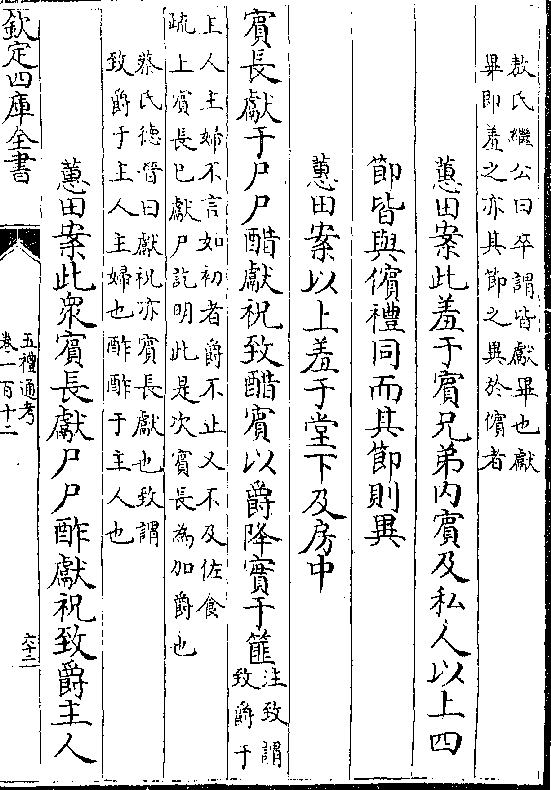 敖氏繼公曰卒謂皆獻畢也獻
畢即羞之亦其節之異於儐者
蕙田案此羞于賓兄弟内賓及私人以上四
節皆與儐禮同而其節則異
蕙田案以上羞于堂下及房中
賓長獻于尸尸醋獻祝致醋賓以爵降實于篚
注致謂
致爵于
主人主婦不言如初者爵不止又不及佐食
疏上賓長已獻尸訖明此是次賓長為加爵也
蔡氏德晉曰獻祝亦賓長獻也致謂
致爵于主人主婦也酢酢于主人也
蕙田案此衆賓長獻尸尸酢獻祝致爵主人
欽定四庫全書
五禮通考
卷一百十二
六十二